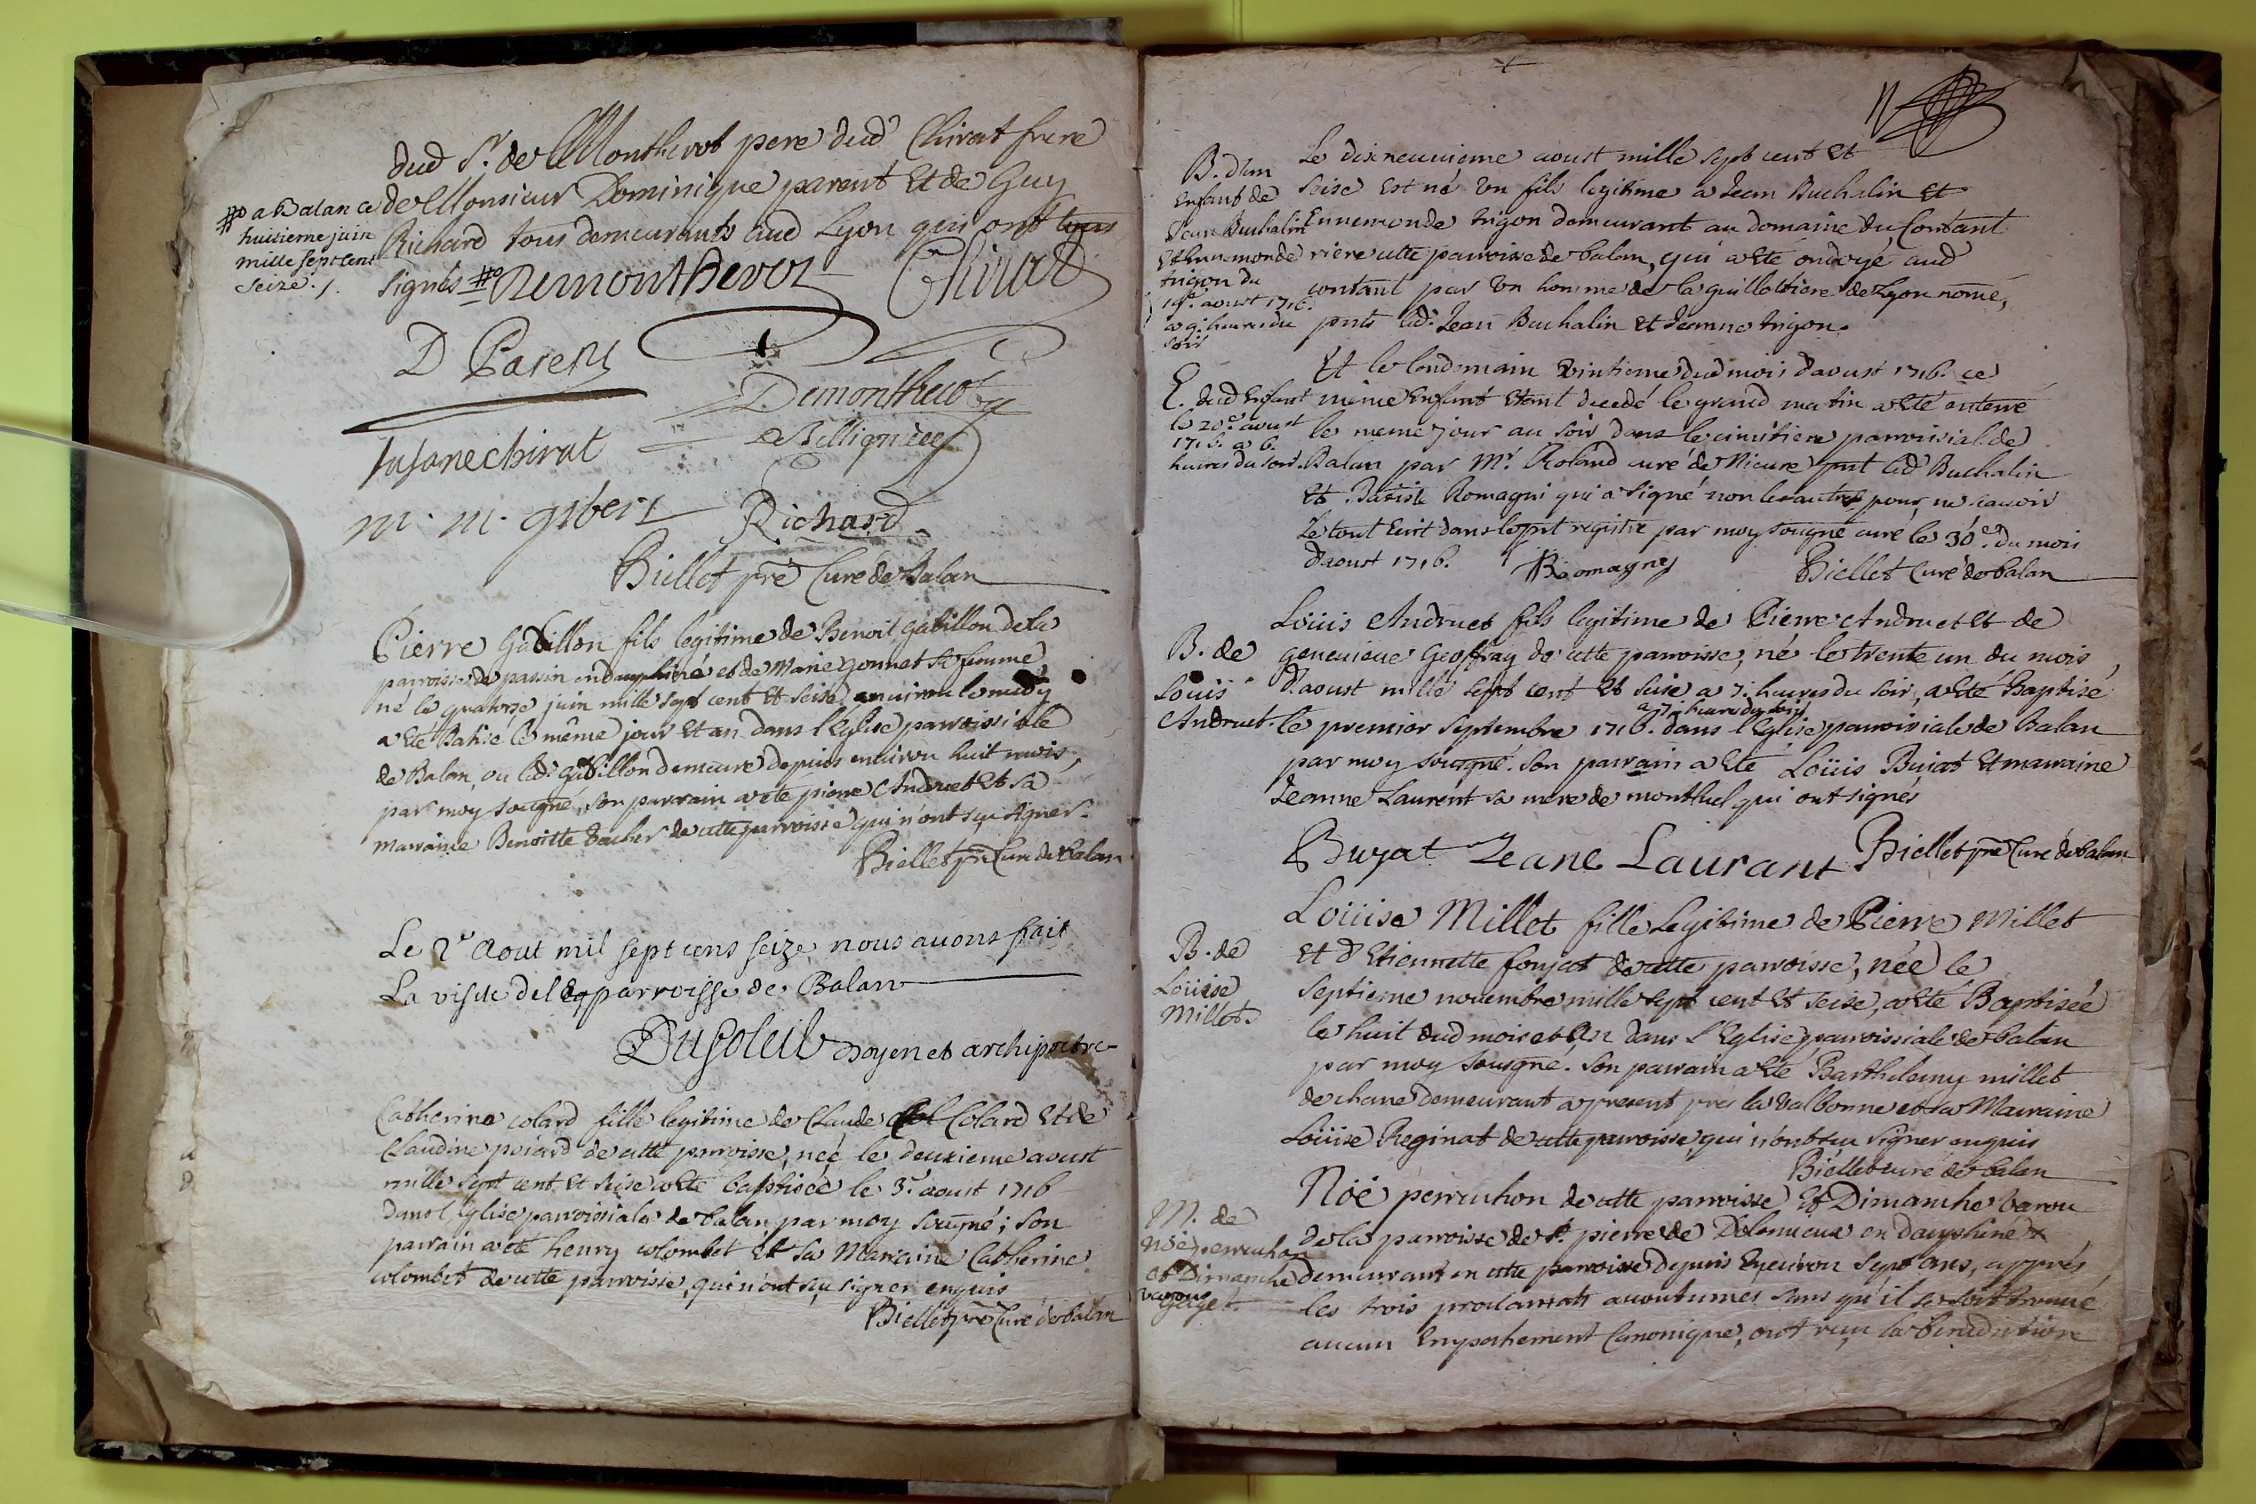 dud Sr. de Montherot pere dud Chirat frere
de Monsieur Dominique parent Et de Guy
Richard tous demeurants aud Lyon qui ont tous
signés
a Balan ce
huitieme juin
mille sept cent
seize ./.
Demontherot Chirat
D Parent
Demontherot
Susane chirat
m. m. gibert Richard
Biellet pre Curé de Balan
Pierre Gabillon fils legitime de Benoit gabillon de la
parroisse de passin en dauphiné et de Marie gonnet sa femme
né le quatorze juin mille sept cent Et seise environ le midy
a Eté Batisé le même jour Et an dans l'Eglise parroissiale
de Balan, ou led. gabillon demeure depuis environ huit mois,
par moy sousigné, son parrain a eté pierre Andruet Et sa
marraine Benoitte de cette parroisse qui n'ont sçu signer.
Biellet pre Curé de Balan
Le 2e Aout mil sept cens seize nous avons fait
La visite de la parroisse de Balan
Dusoleil doyen et archipretre
Catherine colard fille legitime de Claude Colard Et de
Claudine poiard de cette parroisse, née le deuxieme aoust
mille sept cent Et seise a Eté baptisée le 3e aoust 1716
dans l'Eglise parroissiale de balan par moy sousigné; son
parrain a eté henry colombet Et sa Marraine Catherine
colombet de cette parroisse, qui n'ont sçu signer enquis
Biellet pre Curé de balan
11
B. d'un
Enfant de
Jean Buchalin
Et Ennemonde
trigon du
19e. aoust 1716.
a 9. heures du
soir
Le dix neuvieme aoust mille sept cent Et
seise Est né Un fils legitime a Jean Buchalin Et
Ennemonde trigon demeurant au domaine du Contant
riere cette parroisse de balan, qui a eté ondoyé aud
contant par Un homme de la guillottiere de Lyon nomé,
pnts led. Jean Buchalin Et Jeanne trigon.
E. dud Enfant
le 20e aoust
1716. a 6.
heures du soir.
Et le lendemain Vintieme dud mois d'aoust 1716. ce
même Enfant Etant decedé le grand matin a Eté enterré
le meme jour au soir dans le cimitiere parroissial de
Balan par Mr. Roland curé de Nieure pnt led Buchalin
Et Batiste Romagni qui a signé non les autres pour ne scavoir
Le tout Ecrit dans le pnt registre par moy sousigné curé le 30e. du mois
d'aoust 1716. Romagny Biellet Curé de balan
B. de
Louis
Andruet.
Loüis Andruet fils legitime de Pierre Andruet Et de
genevieve Geoffray de cette parroisse, né le trente un du mois
d'aoust mille sept cent Et seise a 7. heures du soir, a Eté Baptisé
le premier septembre 1716. a 7. heures du soir dans l'Eglise parroissiale de Balan
par moy sousigné. son parrain a Eté Loüis Buiat Et marraine
Jeanne Laurent sa mere de montluel qui ont signés
Buyat Jeane Laurant Biellet pre Curé de balan
B. de
Loüise
Millet.
Loüise Millet fille Legitime de Pierre Millet
Et d'Etiennette fonjat de cette parroisse, née le
septieme novembre mille sept cent Et seise, a Eté Baptisée
le huit dud mois et An dans l'Eglise parroissiale de balan
par moy sousigné. Son parrain a Eté Barthelemy millet
de chane demeurant a present pres la valbonne et sa Marraine
Loüise Reginat de cette parroisse, qui n'ont sceu signer enquis
Biellet curé de balan
M. de
Noë perruchon
et Dimanche
varou
Noë perruchon de cette parroisse Et Dimanche Varou
de la parroisse de St. pierre de en dauphiné &
demeurant en cette parroisse depuis Environ sept ans, apprés
les trois proclamats accoutumés sans qu'il se soit trouvé
aucun Empechement Canonique, ont reçu la Benediction